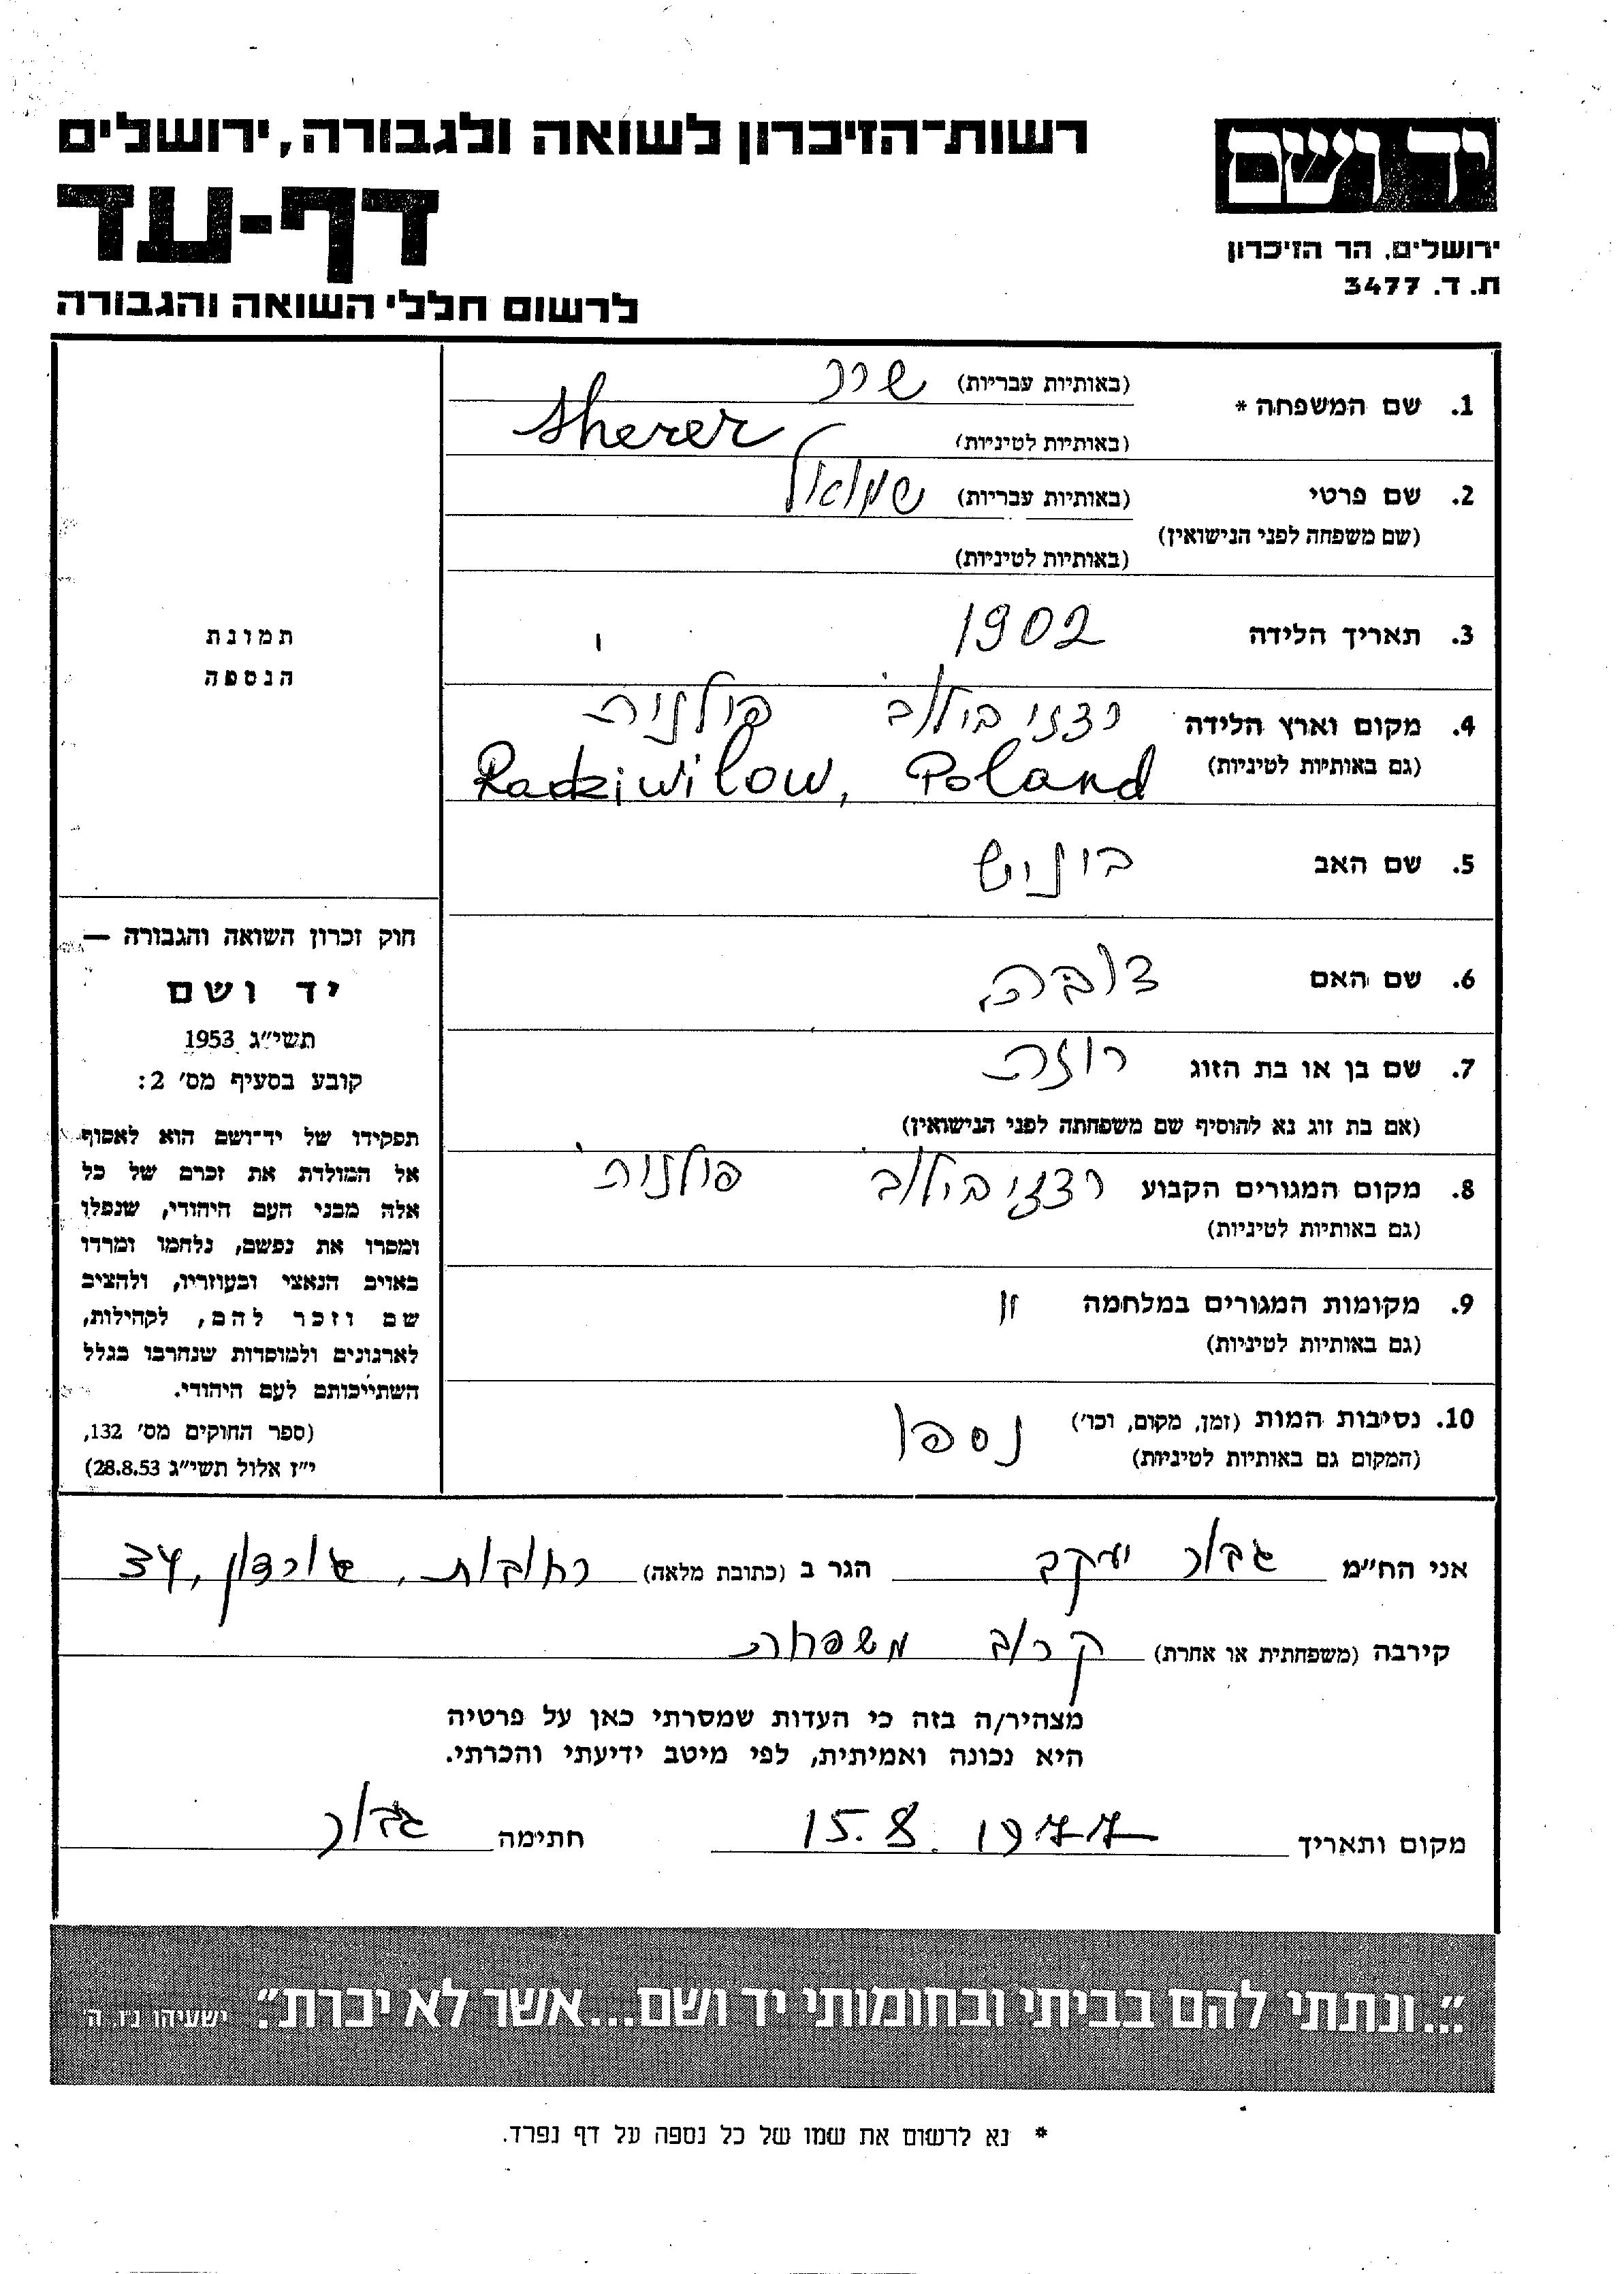 רשות־הזיכרון לשואה ולגבורה, ירושלים
דף-עד
לרשום חללי השואה והגבורה
יד ושם
ירושלים. הר הזיכרון
ת. ד. 3477
1. שם המשפחה * (באותיות עבריות) שרר
(באותיות לטיניות) Sherer
2. שם פרטי (באותיות עבריות) שמואל
(שם משפחה לפני הנישואין)
(באותיות לטיניות)
3. תאריך הלידה 1902
4. מקום וארץ הלידה רדזיבילוב פולניה
(גם באותיות לטיניות) Radziwilow, Poland
5. שם האב בוניש
6. שם האם דובה
7. שם בן או בת הזוג רוזה
(אם בת זוג נא להוסיף שם משפחתה לפני הנישואין)
8. מקום המגורים הקבוע רדזיבילוב פולניה
(גם באותיות לטיניות)
9. מקומות המגורים במלחמה
(גם באותיות לטיניות)
10. נסיבות המות (זמן, מקום, וכו') נספו
(המקום גם באותיות לטיניות)
תמונת
הנספה
חוק זכרון השואה והגבורה —
יד ושם
תשי״ג 1953
קובע בסעיף מס' 2:
תפקידו של יד־ושם הוא לאסוף
אל המולדת את זכרם של כל
אלה מבני העם היהודי, שנפלו
ומסרו את נפשם, נלחמו ומרדו
באויב הנאצי ובעוזריו, ולהציב
שם וזכר להם, לקהילות,
לארגונים ולמוסדות שנחרבו בגלל
השתייכותם לעם היהודי.
(ספר החוקים מס' 132,
י״ז אלול תשי״ג 28.8.53)
אני הח״מ גבור יעקב הגר ב (כתובת מלאה) רחובות, גורדון 34,
קירבה (משפחתית או אחרת) קרוב משפחה
מצהיר/ה בזה כי העדות שמסרתי כאן על פרטיה
היא נכונה ואמיתית, לפי מיטב ידיעתי והכרתי.
מקום ותאריך 15.8.1977 חתימה גבור
"...ונתתי להם בביתי ובחומותי יד ושם...אשר לא יכרת". ישעיהו נ״ו. ה'
* נא לרשום את שמו של כל נספה על דף נפרד.